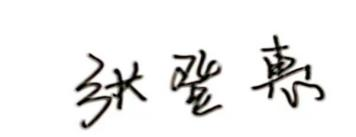 张登惠